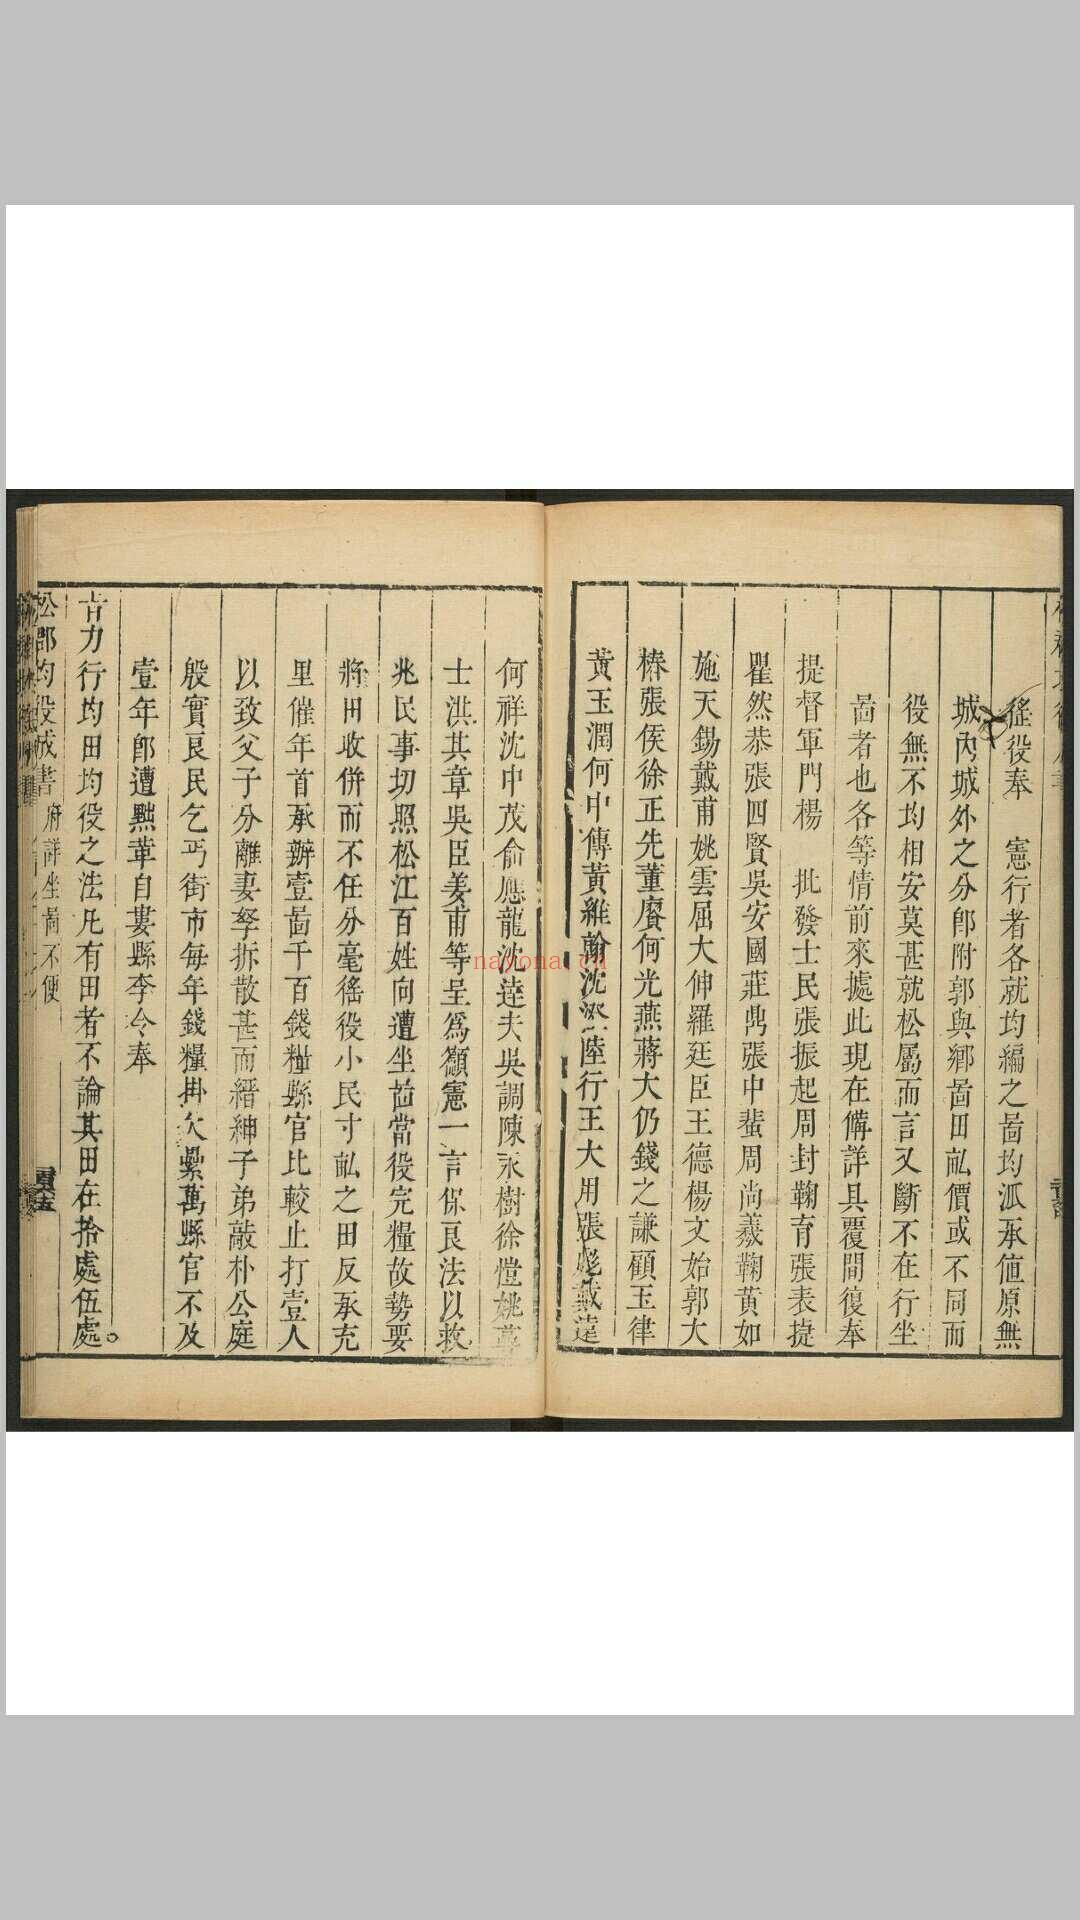 徭役奉　憲行者各就均編之啚均派承値原無
城內城外之分卽附郭與鄉啚田畝價或不同而
役無不均相安莫甚就松屬而言又斷不在行坐
啚者也各等情前來據此現在備詳具覆間復奉
提督軍門楊　批發士民張振起周封鞠育張表㨗
瞿然恭張四賢吳安國莊鼎張中蜚周尚羲鞠黃如
施天錫戴甫姚雲屈大伸羅廷臣王德楊文始郭大
椿張侯徐正先董賡何光燕蔣大仍錢之謙顧玉律
黃玉潤何中傳黃維翰沈 陸行王大用張彪戴達
何祥沈中茂俞應龍沈逵夫吳調陳永樹徐愷姚
士洪其章吳臣姜甫等呈爲籲憲一言保良法以救
兆民事切照松江百姓向遭坐啚當役完糧故勢要
將田收併而不任分毫徭役小民寸畝之田反承充
里催年首承辦壹啚千百錢糧縣官比較止打壹人
以致父子分離妻孥拆散甚而縉紳子弟敲朴公庭
殷實良民乞丐街市每年錢糧掛欠纍萬縣官不及
壹年卽遭黜革自婁縣李令奉
旨力行均田均役之法凡有田者不論其田在拾處伍處
松郡均役成書　府詳坐啚不便　貳五
nayona.cn